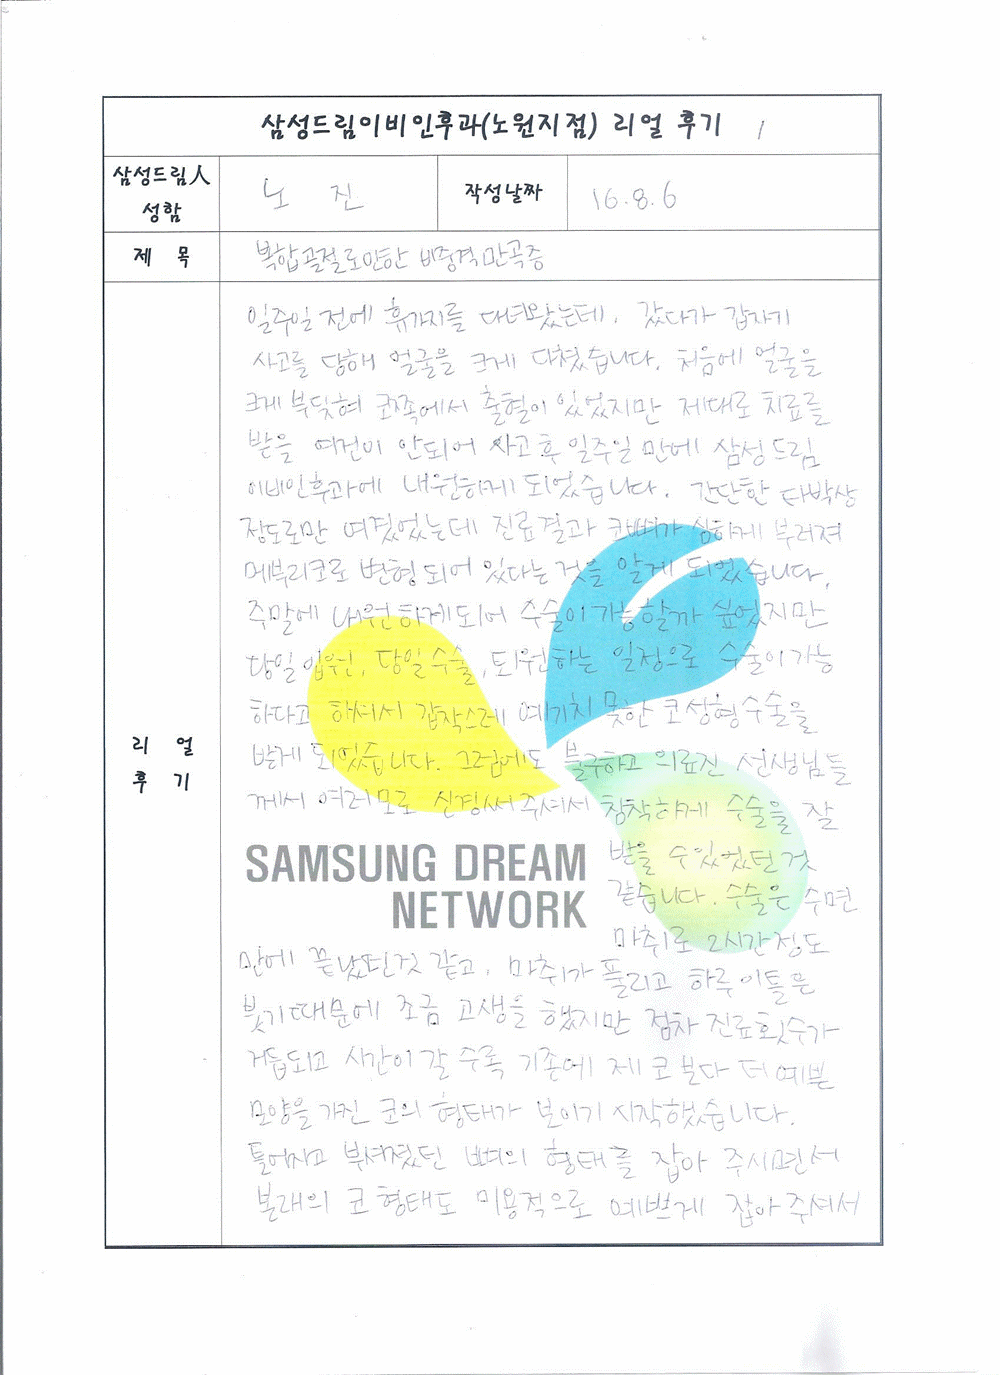 삼성드림이비인후과(노원지점) 리얼 후기 1
삼성드림人 성함
노 진
작성날짜
16.8.6
제 목
복합골절로인한 비중격만곡증
리 얼 후 기
일주일 전에 휴가지를 다녀왔는데, 갔다가 갑자기
사고를 당해 얼굴을 크게 다쳤습니다. 처음에 얼굴을
크게 부딪혀 코쪽에서 출혈이 있었지만 제대로 치료를
받을 여건이 안되어 사고 후 일주일 만에 삼성드림
이비인후과에 내원하게 되었습니다. 간단한 타박상
정도로만 여겼었는데 진료결과 코뼈가 심하게 부러져
메부리코로 변형되어 있다는 것을 알게 되었습니다.
주말에 내원하게되어 수술이 가능할까 싶었지만
당일 입원, 당일수술, 퇴원하는 일정으로 수술이 가능
하다고 하셔서 갑작스레 예기치 못한 코성형수술을
받게 되었습니다. 그럼에도 불구하고 의료진 선생님들
께서 여러모로 신경써주셔서 침착하게 수술을 잘
받을 수있었던 것
같습니다. 수술은 수면
마취로 2시간정도
만에 끝났던것 같고, 마취가 풀리고 하루 이틀은
붓기때문에 조금 고생을 했지만 점차 진료횟수가
거듭되고 시간이 갈 수록 기존에 제 코 보다 더 예쁜
모양을 가진 코의 형태가 보이기 시작했습니다.
틀어지고 부셔졌던 뼈의 형태를 잡아 주시면서
본래의 코 형태도 미용적으로 예쁘게 잡아 주셔서
SAMSUNG DREAM
NETWORK